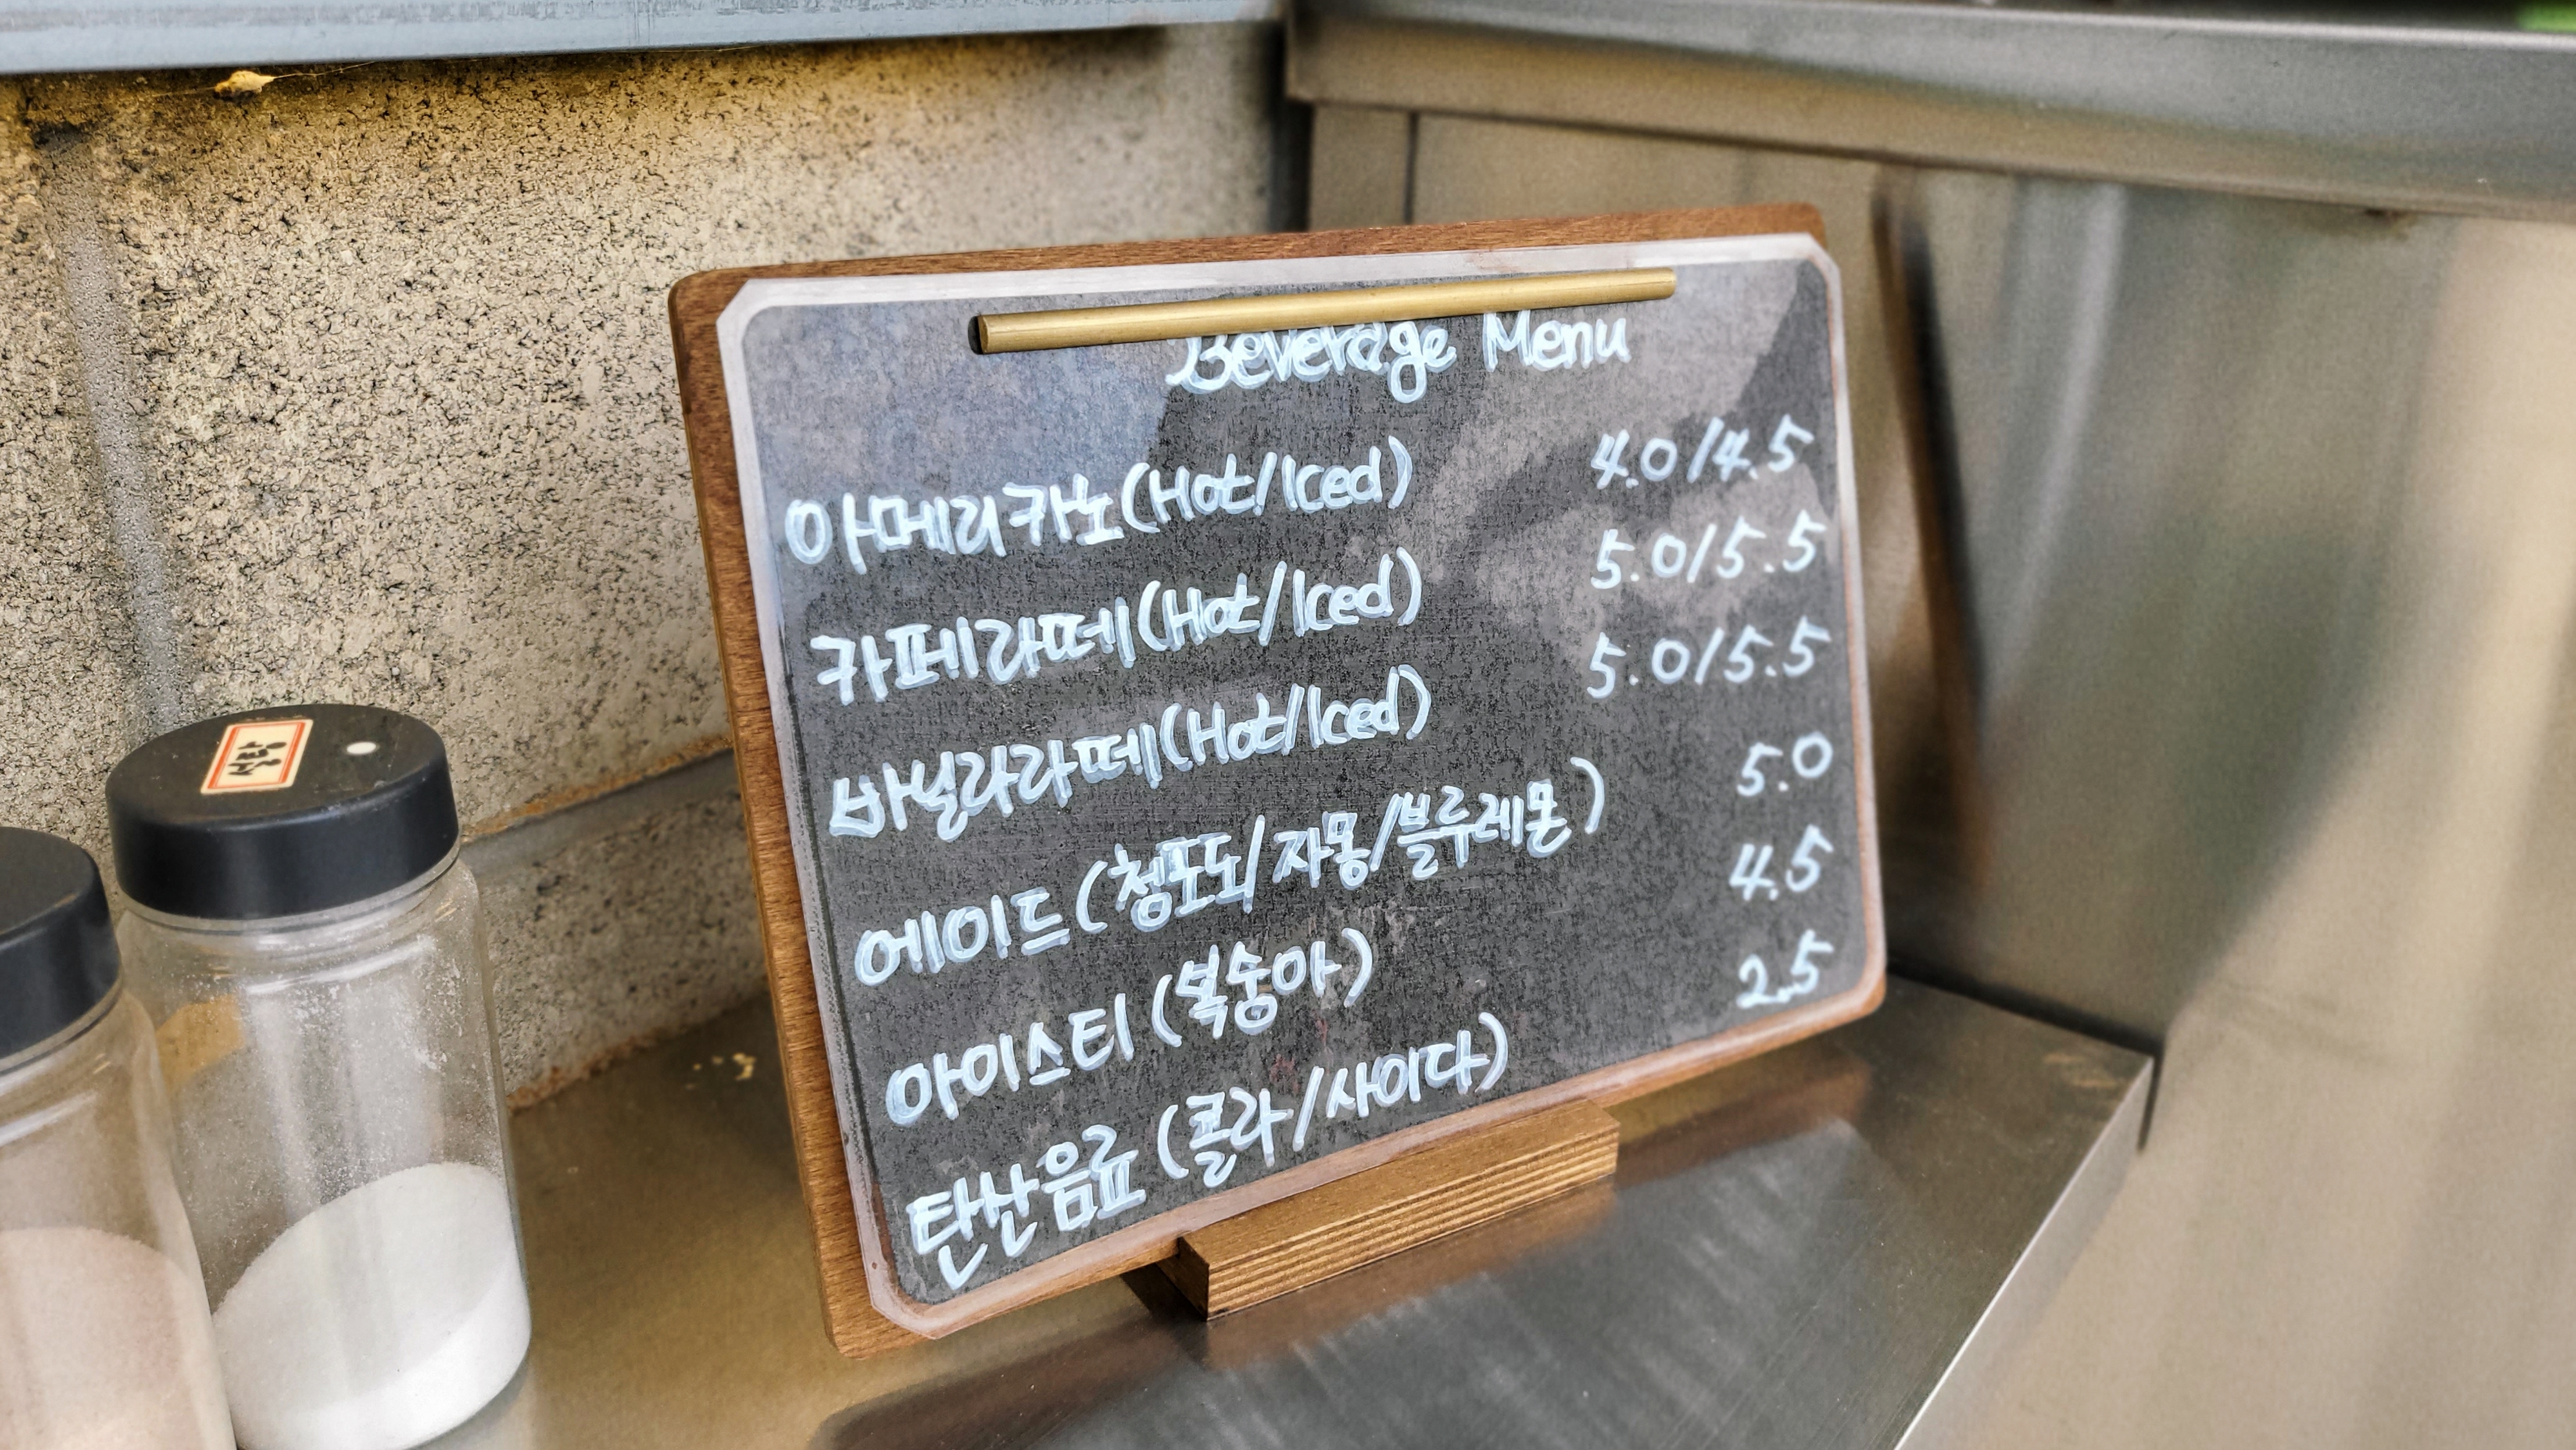 Beverage Menu
아메리카노(Hot/Iced) 4.0/4.5
카페라떼(Hot/Iced) 5.0/5.5
바닐라라떼(Hot/Iced) 5.0/5.5
에이드(청포도/자몽/블루레몬) 5.0
아이스티(복숭아) 4.5
탄산음료(콜라/사이다) 2.5